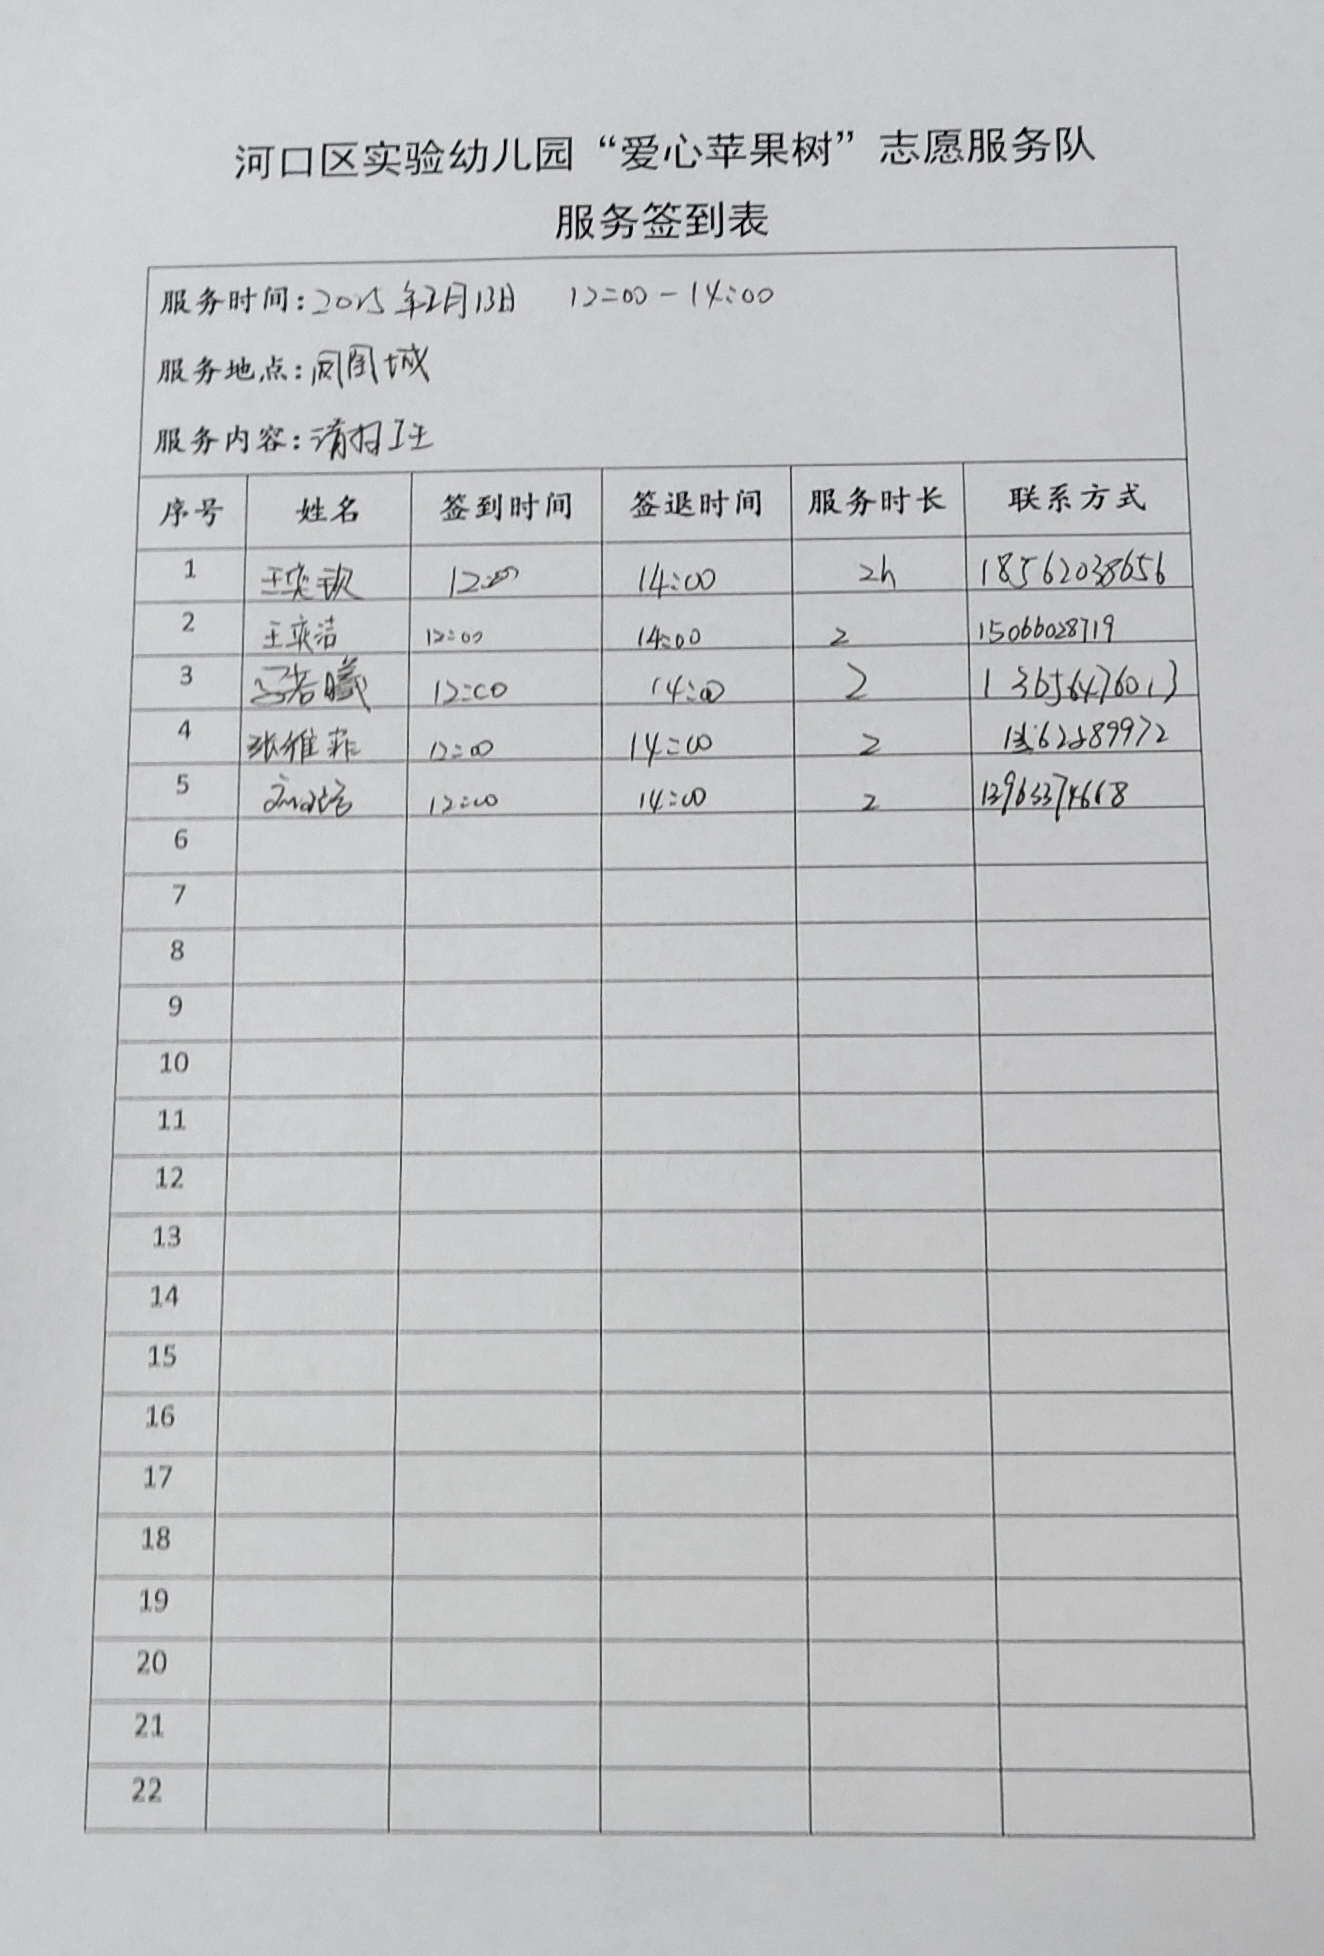 河口区实验幼儿园“爱心苹果树”志愿服务队
服务签到表
服务时间:2025年2月13日 12:00-14:00
服务地点:凤凰城
服务内容:清扫卫生
序号 姓名 签到时间 签退时间 服务时长 联系方式
1 王奕钦 12:00 14:00 2h 18562038656
2 王奕洁 12:00 14:00 2 15066028719
3 12:00 14:00 2 13656476013
4 张维菲 12:00 14:00 2
5 12:00 14:00 2 13963374668
6
7
8
9
10
11
12
13
14
15
16
17
18
19
20
21
22